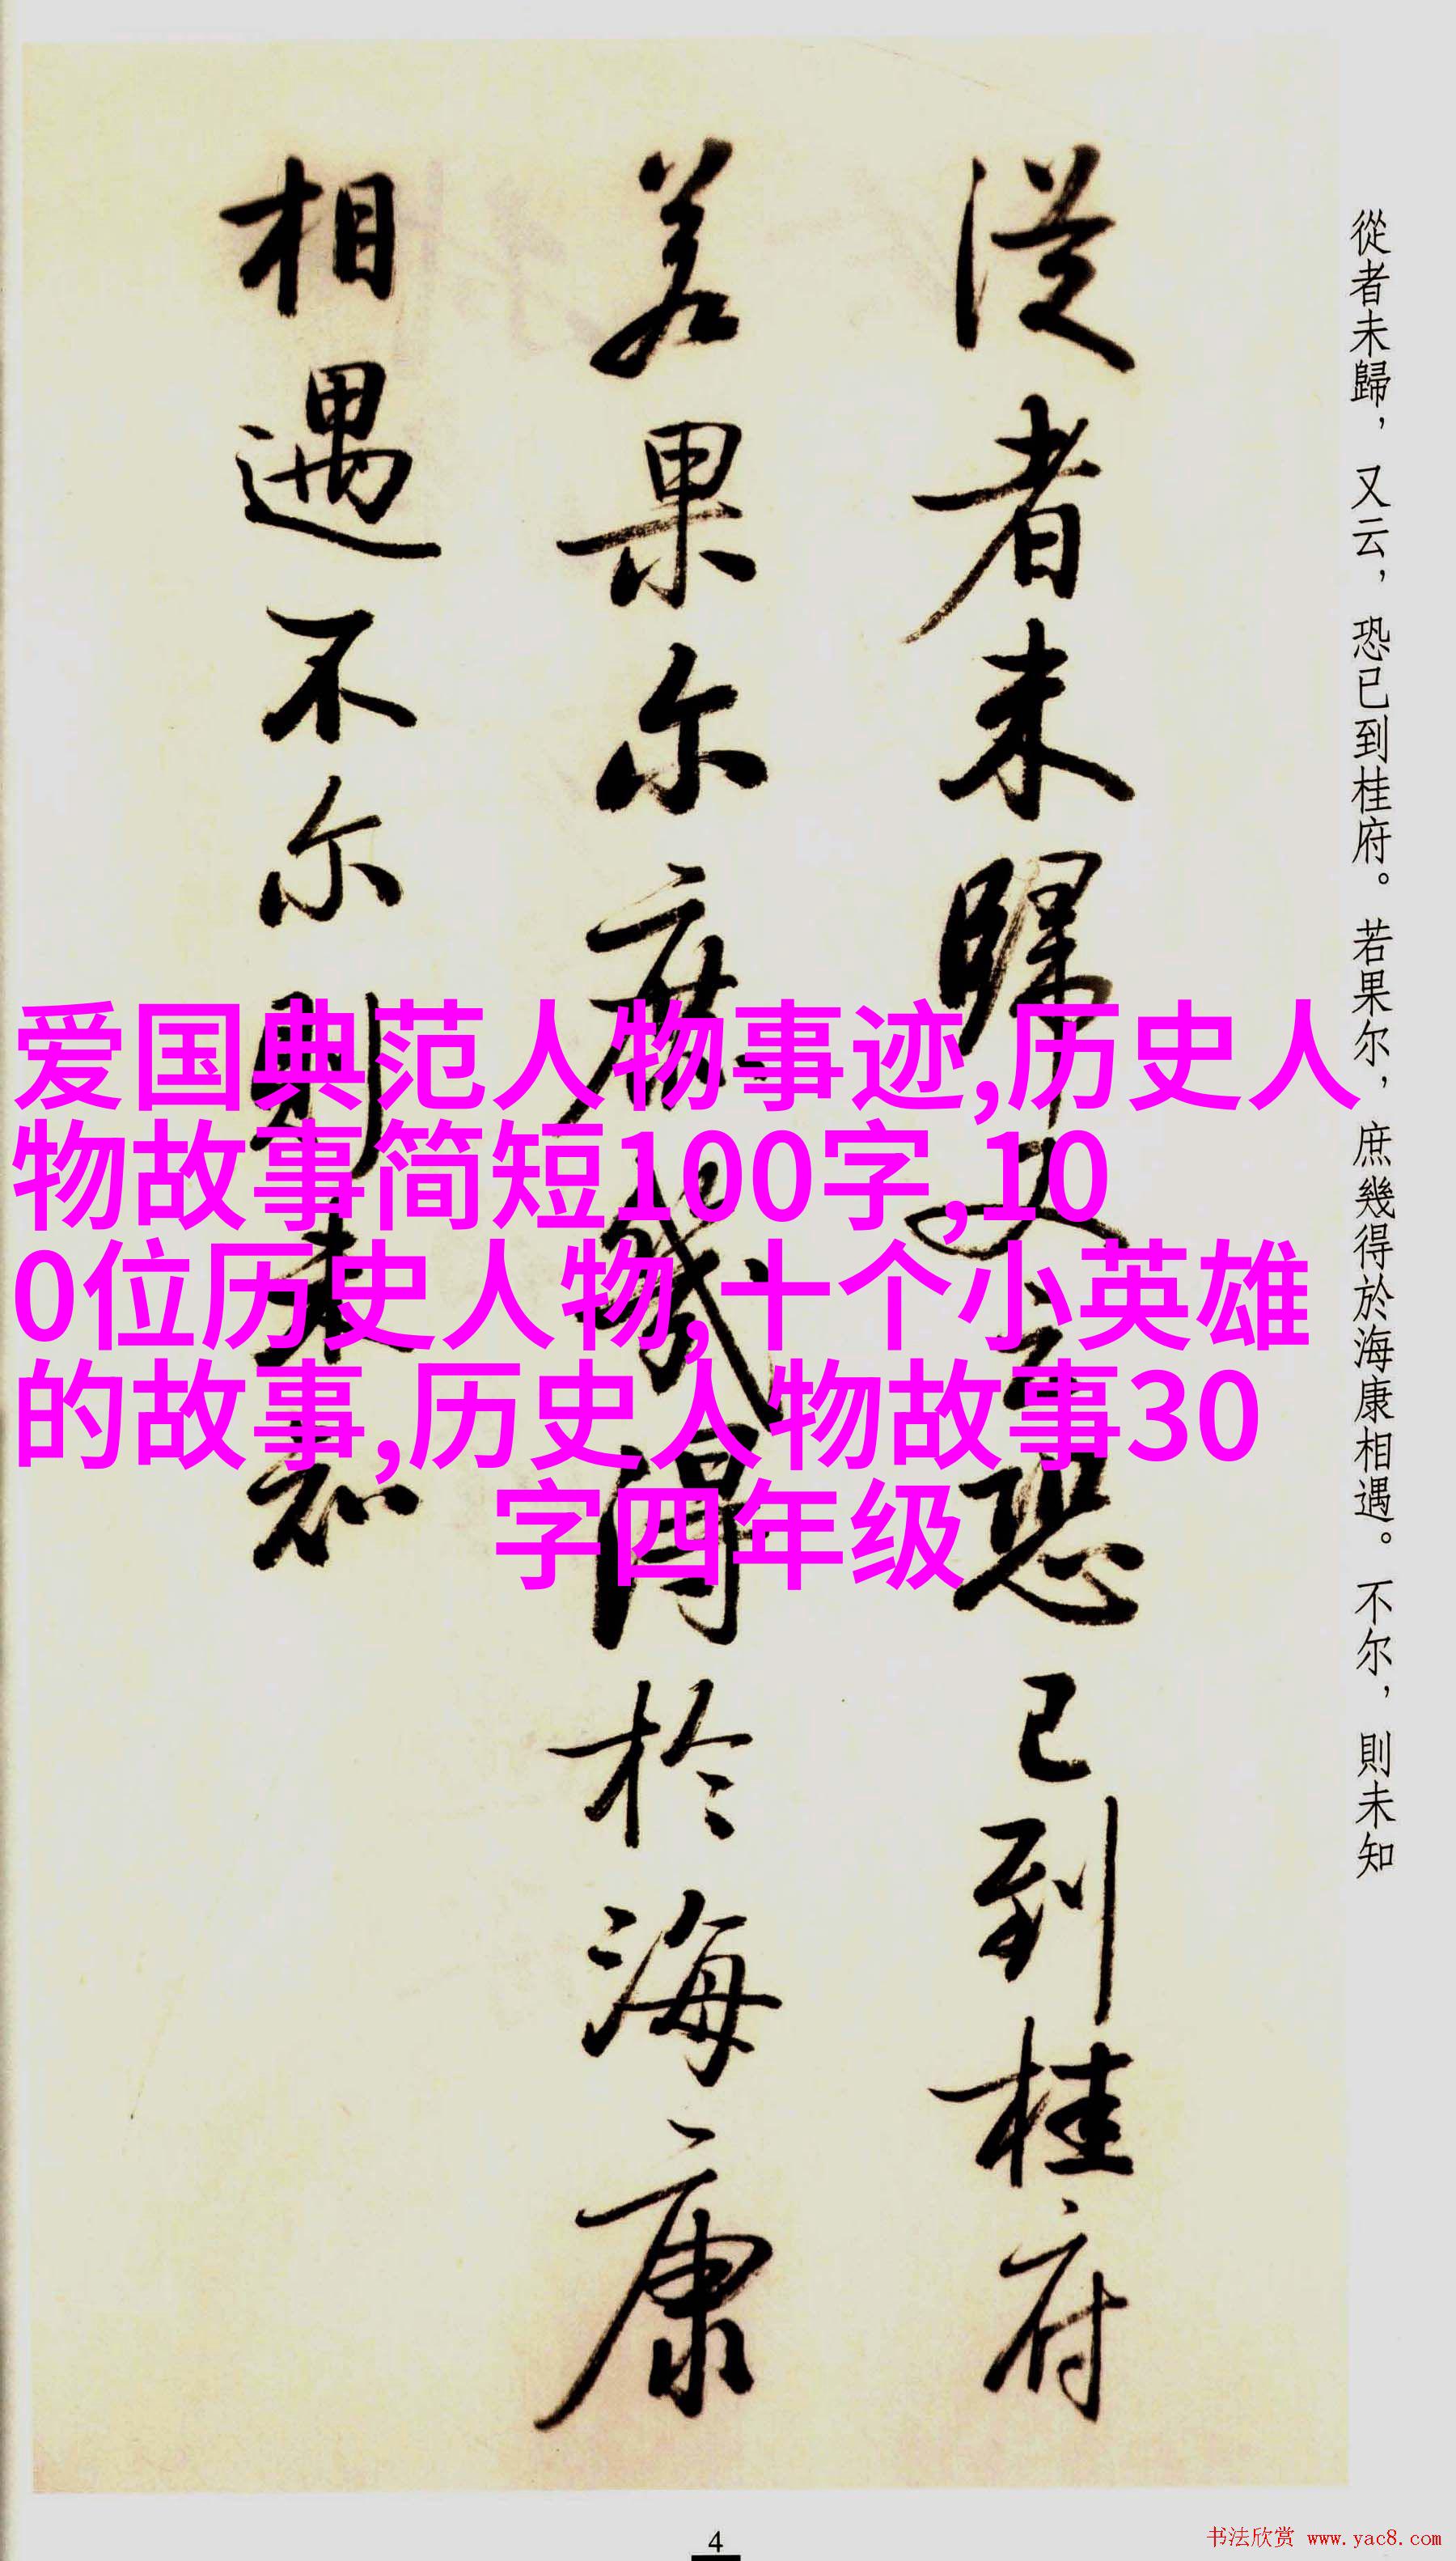 從者未歸，又云，恐已到桂府。若果尔，庶幾得於海康相遇。不尔，則未知
從者未歸又云恐已到桂府
若果尔庶幾得於海康
相遇不尔則未知
爱国典范人物事迹,历史人
物故事简短100字,10
0位历史人物,十个小英雄
的故事,历史人物故事30
字四年级
4
书法欣赏 www.yac8.com